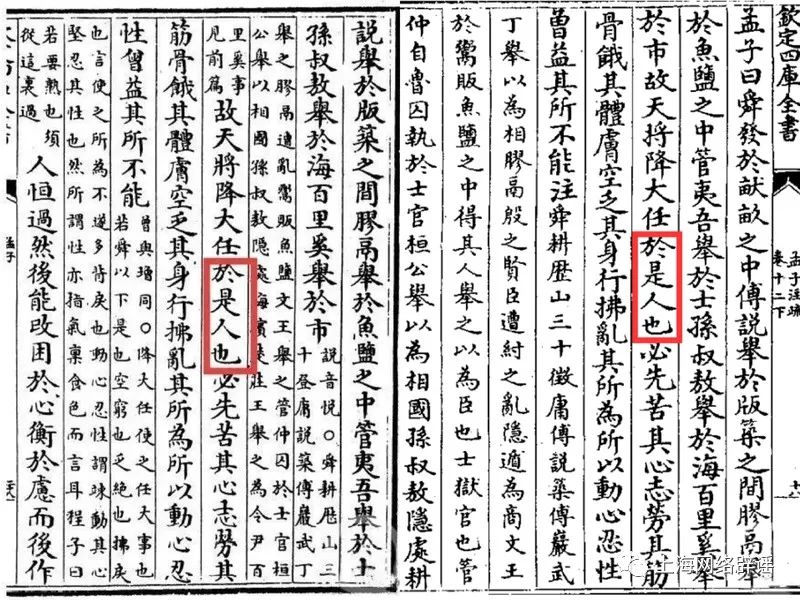 欽定四庫全書
孟子注疏
卷十二下
孟子曰舜發於畎畝之中傅說舉於版築之間膠鬲舉
於魚鹽之中管夷吾舉於士孫叔敖舉於海百里奚舉
於市故天將降大任於是人也必先苦其心志勞其筋
骨餓其體膚空乏其身行拂亂其所為所以動心忍性
曾益其所不能注舜耕歴山三十徵庸傅說築傅巖武
丁舉以為相膠鬲殷之賢臣遭紂之亂隱遁為商文王
於鬻販魚鹽之中得其人舉之以為臣也士獄官也管
仲自魯囚執於士官桓公舉以為相國孫叔敖隱處耕
說舉於版築之間膠鬲舉於魚鹽之中管夷吾舉於士
孫叔敖舉於海百里奚舉於市
說音悅○舜耕歴山三
十登庸說築傅巖武丁
舉之膠鬲遭亂鬻販魚鹽文王舉之管仲囚於士官桓
公舉以相國孫叔敖隱處海濱楚莊王舉之為令尹百
里奚事
見前篇
故天將降大任於是人也必先苦其心志勞其
筋骨餓其體膚空乏其身行拂亂其所為所以動心忍
性曾益其所不能
曾與增同○降大任使之任大事也
若舜以下是也空窮也乏絕也拂戾
也言使之所為不遂多背戾也動心忍性謂竦動其心
堅忍其性也然所謂性亦指氣稟食色而言耳程子曰
若要熟也須
從這裏過
人恒過然後能改困於心衡於慮而後作
孟子
上海网络辟谣